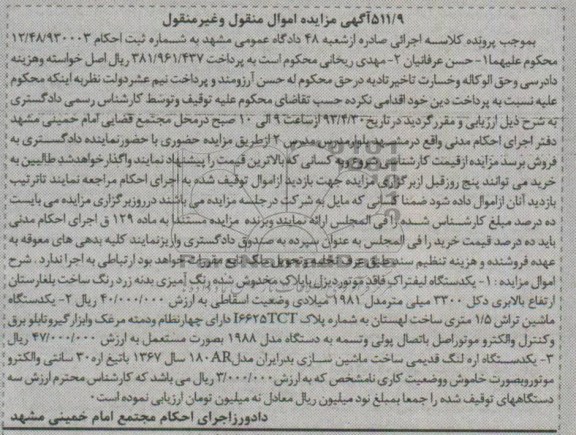 ۵۱۱/۹آگهی مزایده اموال منقول وغیرمنقول
بموجب پرونده کلاسه اجرائی صادره ازشعبه ۴۸ دادگاه عمومی مشهد به شماره ثبت احکام ۱۲/۴۸/۹۳۰۰۰۳
محکوم علیهما۱- حسن عرفانیان ۲-مهدی ریحانی محکوم است به پرداخت ۳۸۱/۹۶۱/۴۳۷ ریال اصل خواسته وهزینه
دادرسی وحق الوکاله وخسارت تاخیر تادیه در حق محکوم له حسن آرزومند و پرداخت نیم عشردولت نظربه اینکه محکوم
علیه نسبت به پرداخت دین خود اقدامی نکرده حسب تقاضای محکوم علیه توقیف وتوسط کارشناس رسمی دادگستری
به شرح ذیل ارزیابی و مقرر گردید در تاریخ ۹۳/۴/۳۰ از ساعت ۹ الی ۱۰ صبح درمحل مجتمع قضایی امام خمینی مشهد
دفتر اجرای احکام مدنی واقع درمشهد بلوارمدرس مدرس ۲ ازطریق مزایده حضوری با حضورنماینده دادگستری به
فروش برسد مزایده ازقیمت کارشناسی شروع وبه کسانی که بالاترین قیمت را پیشنهاد نمایند واگذار خواهدشد طالبین به
خرید می توانند پنج روزقبل ازبرگزاری مزایده جهت بازدید ازاموال توقیف شده به اجرای احکام مراجعه نمایند تاترتیب
بازدید آنان ازاموال داده شود ضمنا کسانی که مایل به شرکت درجلسه مزایده می باشند درروزبرگزاری مزایده می بایست
ده درصد مبلغ کارشناس شده را فی المجلس ارائه نمایند وبرنده مزایده مستندا به ماده ۱۲۹ ق اجرای احکام مدنی
باید ده درصد قیمت خرید را فی المجلس به عنوان سپرده به صندوق دادگستری واریزنمایند کلیه بدهی های معوقه به
عهده فروشنده و هزینه تنظیم سند طبق عرف تخلیه وتحویل ملک تابع مقررات خواهد بود ارتباطی به اجرا ندارد . شرح
اموال مزایده : ۱- یکدستگاه لیفتراک فاقد موتوردیزل باپلاک مخدوش شده رنگ آمیزی بدنه زرد رنگ ساخت بلغارستان
ارتفاع بالابری دکل ۳۳۰۰ میلی مترمدل ۱۹۸۱ میلادی وضعیت اسقاطی به ارزش ۴۰/۰۰۰/۰۰۰ ریال ۲- یکدستگاه
ماشین تراش ۱/۵ متری ساخت لهستان به شماره پلاک I۶۶۲۵TCT دارای چهارنظام ودمته مرغک وابزارگیروتابلو برق
وکنترل والکترو موتوراصل باتصال پولی وتسمه به دستگاه مدل ۱۹۸۸ بصورت مستعمل به ارزش ۴۷/۰۰۰/۰۰۰ ریال
۳- یکدستگاه اره لنگ قدیمی ساخت ماشین سازی بدرایران مدل۱۸۰AR سال ۱۳۶۷ باتیغ اره۳۰ سانتی والکترو
موتوروبصورت خاموش ووضعیت کاری نامشخص که به ارزش۳/۰۰۰/۰۰۰ ریال می باشد که کارشناس محترم ارزش سه
دستگاههای توقیف شده را جمعا بمبلغ نود میلیون ریال معادل نه میلیون تومان ارزیابی نموده است.
دادورزاجرای احکام مجتمع امام خمینی مشهد